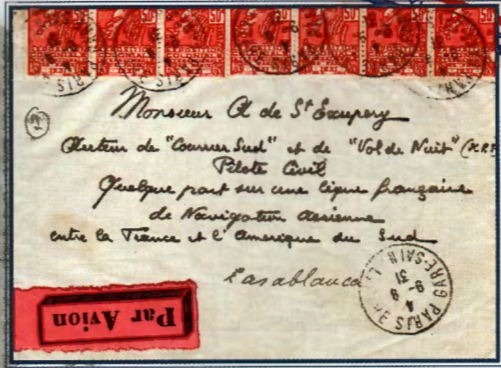 50 50 50 50 50 50
Monsieur A de St Exupery
Auteur de "Courrier Sud" et de "Vol de Nuit" (N.R.F
Pilote Civil
Quelque part sur une ligne française
de Navigation aerienne
entre la France et l'Amerique du Sud
Casablanca
PARIS
GARE SAIN L
4 9
9-
31
Par Avion